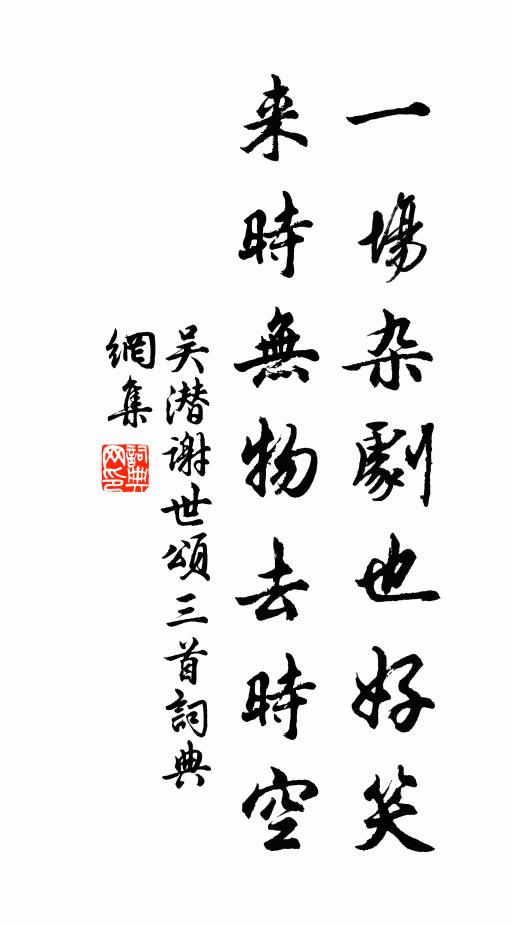 一場杂劇也好笑
来時無物去時空
吴潜谢世頌三首詞典
網集
詞典网印